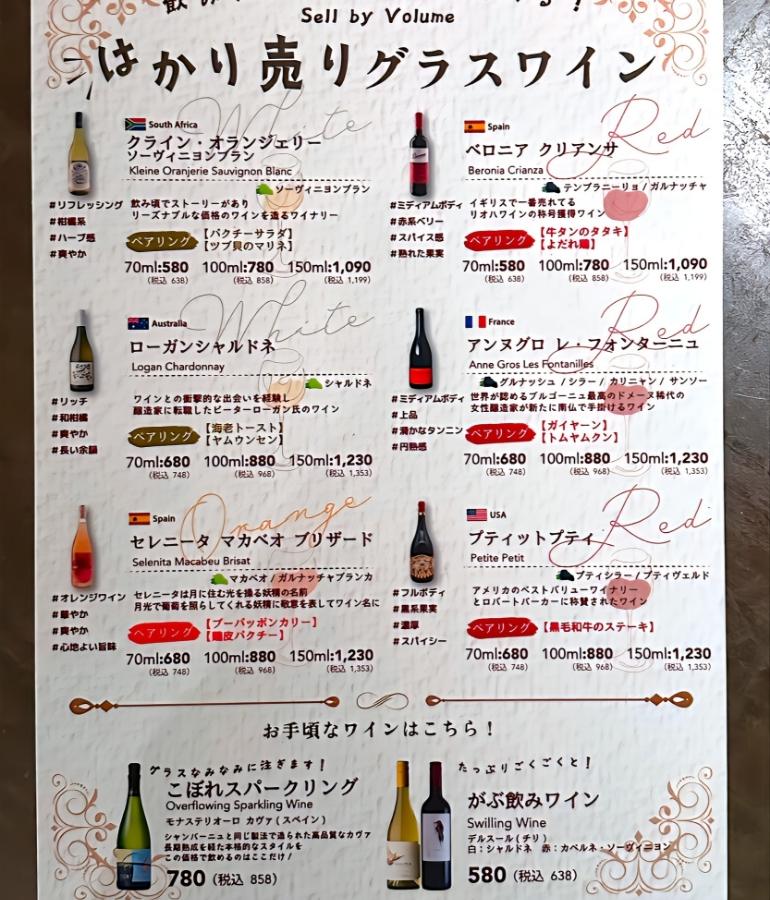 Sell by Volume
はかり売りグラスワイン
White
South Africa
クライン・オランジェリー
ソーヴィニヨンブラン
Kleine Oranjerie Sauvignon Blanc
ソーヴィニヨンブラン
#リフレッシング
#柑橘系
#ハーブ感
#爽やか
飲み頃でストーリーがあり
リーズナブルな価格のワインを造るワイナリー
ペアリング
【パクチーサラダ】
【ツブ貝のマリネ】
70ml:580 100ml:780 150ml:1,090
(税込 638) (税込 858) (税込 1,199)
Red
Spain
ベロニア クリアンサ
Beronia Crianza
テンプラニーリョ / ガルナッチャ
#ミディアムボディ
#赤系ベリー
#スパイス感
#熟れた果実
イギリスで一番売れてる
リオハワインの称号獲得ワイン
ペアリング
【牛タンのタタキ】
【よだれ鶏】
70ml:580 100ml:780 150ml:1,090
(税込 638) (税込 858) (税込 1,199)
White
Australia
ローガンシャルドネ
Logan Chardonnay
シャルドネ
#リッチ
#和柑橘
#爽やか
#長い余韻
ワインとの衝撃的な出会いを経験し
醸造家に転職したピーターローガン氏のワイン
ペアリング
【海老トースト】
【ヤムウンセン】
70ml:680 100ml:880 150ml:1,230
(税込 748) (税込 968) (税込 1,353)
Red
France
アンヌグロ レ・フォンターニュ
Anne Gros Les Fontanilles
グルナッシュ / シラー / カリニャン / サンソー
#ミディアムボディ
#上品
#滑かなタンニン
#円熟感
世界が認めるブルゴーニュ最高のドメーヌ稀代の
女性醸造家が新たに南仏で手掛けるワイン
ペアリング
【ガイヤーン】
【トムヤムクン】
70ml:680 100ml:880 150ml:1,230
(税込 748) (税込 968) (税込 1,353)
Orange
Spain
セレニータ マカベオ ブリザード
Selenita Macabeu Brisat
マカベオ / ガルナッチャブランカ
#オレンジワイン
#華やか
#爽やか
#心地よい旨味
セレニータは月に住む光を操る妖精の名前
月光で葡萄を照らしてくれる妖精に敬意を表してワイン名に
ペアリング
【プーパッポンカリー】
【鶏皮パクチー】
70ml:680 100ml:880 150ml:1,230
(税込 748) (税込 968) (税込 1,353)
Red
USA
プティットプティ
Petite Petit
プティシラー / プティヴェルド
#フルボディ
#黒系果実
#濃厚
#スパイシー
アメリカのベストバリューワイナリー
とロバートパーカーに称賛されたワイン
ペアリング
【黒毛和牛のステーキ】
70ml:680 100ml:880 150ml:1,230
(税込 748) (税込 968) (税込 1,353)
お手頃なワインはこちら！
グラスなみなみに注ぎます！
こぼれスパークリング
Overflowing Sparkling Wine
モナステリオーロ カヴァ (スペイン)
シャンパーニュと同じ製法で造られた高品質なカヴァ
長期熟成を経た本格的なスタイルを
この価格で飲めるのはここだけ！
780 (税込 858)
たっぷりごくごくと！
がぶ飲みワイン
Swilling Wine
デルスール (チリ)
白：シャルドネ 赤：カベルネ・ソーヴィニヨン
580 (税込 638)